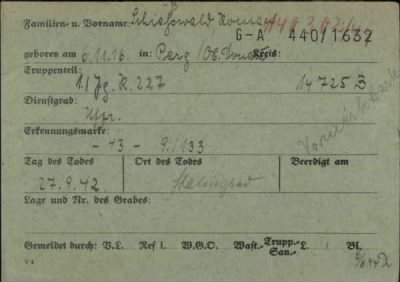 Familien- u. Vorname: Schießwald
G-A 440/1632
geboren am 6.11.16. in: Perg /Ob. Donau Kreis:
Truppenteil:
1. Jg. R. 227 14725 B
Dienstgrad:
Erkennungsmarke:
- 43 - 9./133
Tag des Todes Ort des Todes Beerdigt am
27.9.42. Stalingrad
Lage und Nr. des Grabes:
Gemeldet durch: V.L. Ref I. W.G.O. Wast.- Trupp.- L. Bl.
San.-